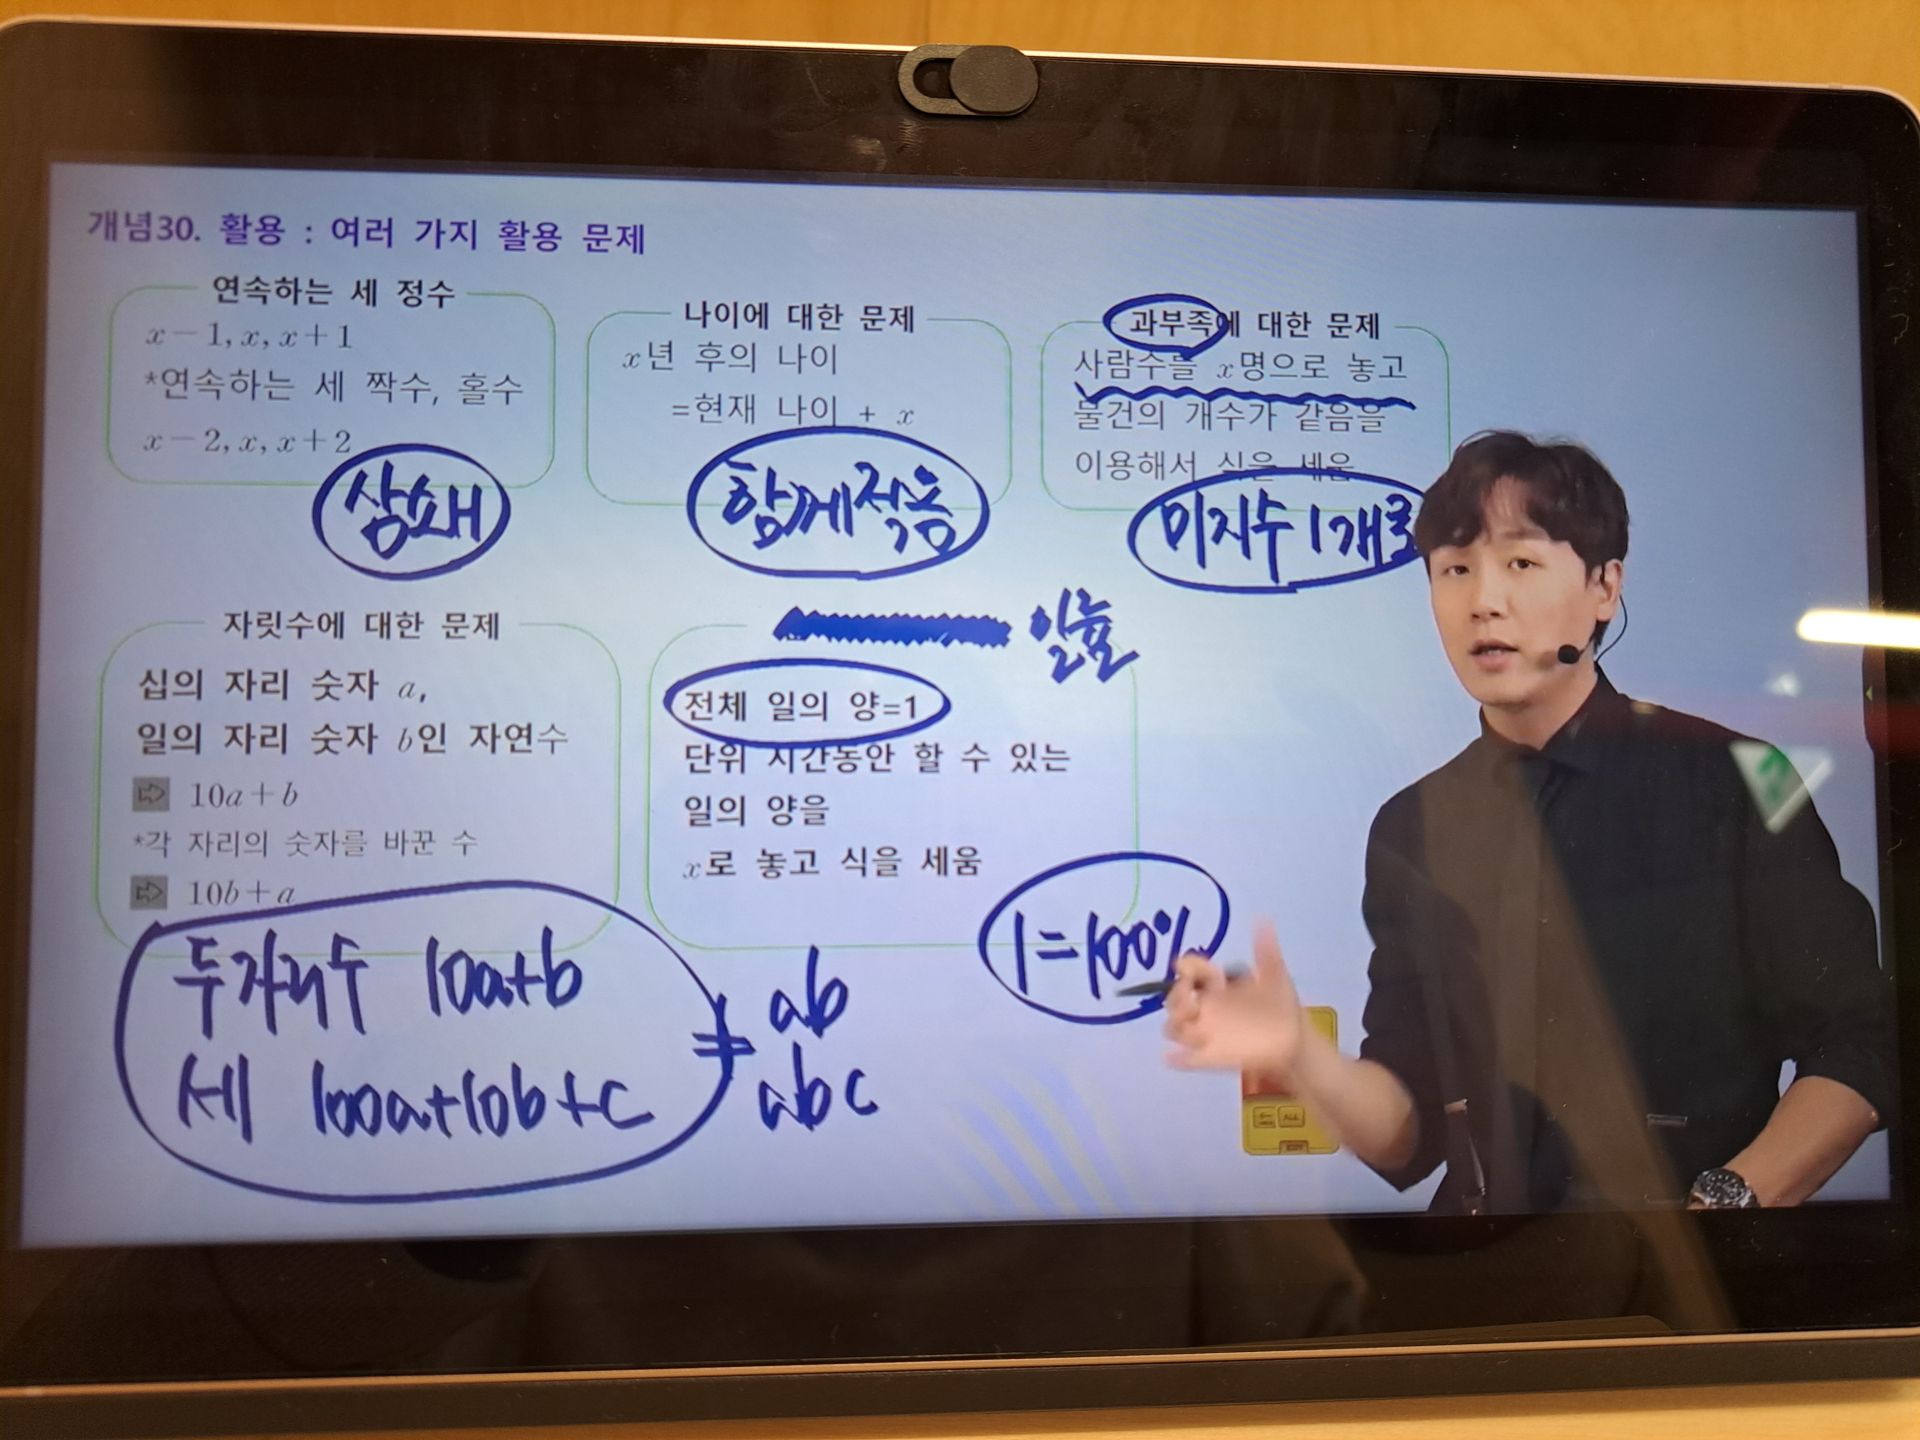 개념30. 활용 : 여러 가지 활용 문제
연속하는 세 정수
x-1, x, x+1
*연속하는 세 짝수, 홀수
x-2, x, x+2
상쇄
나이에 대한 문제
x년 후의 나이
=현재 나이 + x
함께적용
과부족에 대한 문제
사람수를 x명으로 놓고
물건의 개수가 같음을
이용해서 식을 세움
미지수 1개로
자릿수에 대한 문제
십의 자리 숫자 a,
일의 자리 숫자 b인 자연수
⇨ 10a+b
*각 자리의 숫자를 바꾼 수
⇨ 10b+a
두자리수 10a+b
세 100a+10b+c
≠ ab
abc
일률
전체 일의 양=1
단위 시간동안 할 수 있는
일의 양을
x로 놓고 식을 세움
1=100%